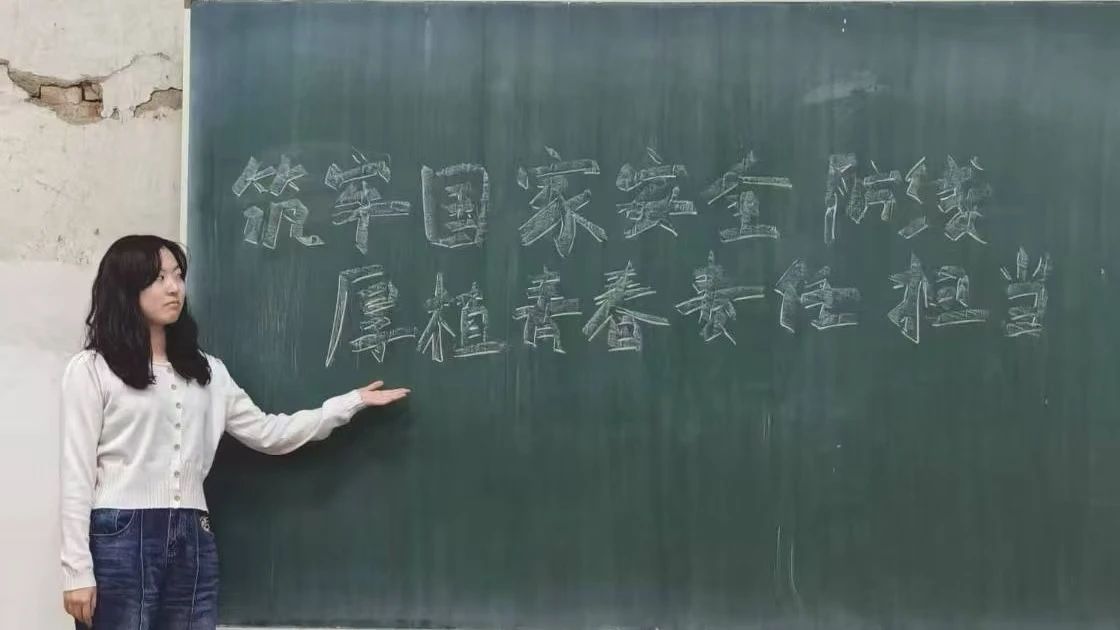 筑牢国家安全防线
厚植青春责任担当